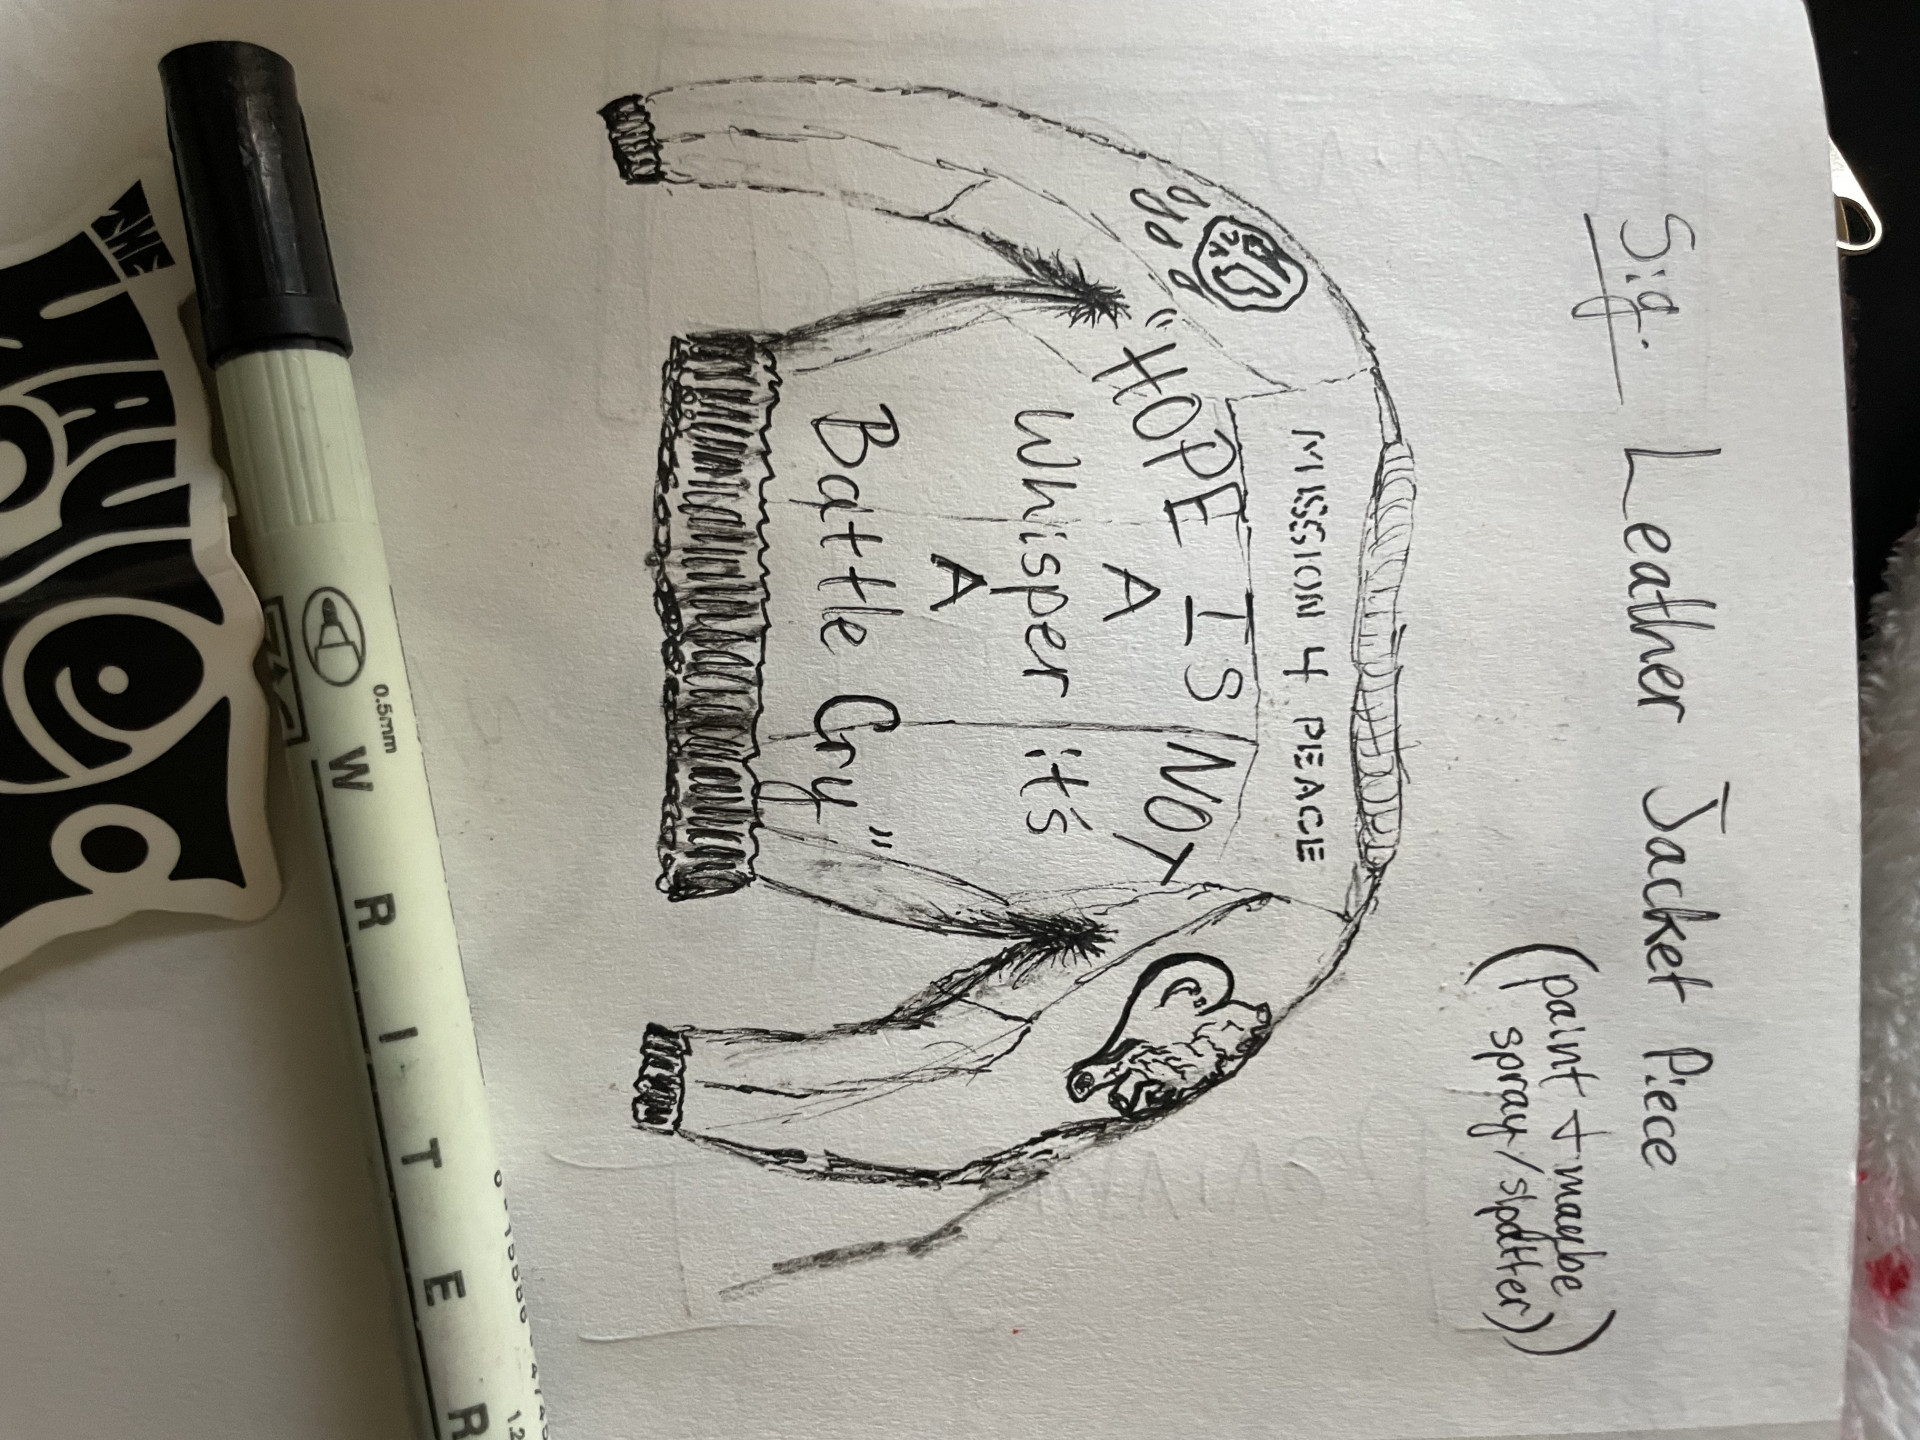 Sig. Leather Jacket Piece
(paint + maybe
spray/splatter)
MISSION 4 PEACE
"HOPE IS NOT
A
Whisper it's
A
Battle Cry"
0.5mm
WRITER
THE